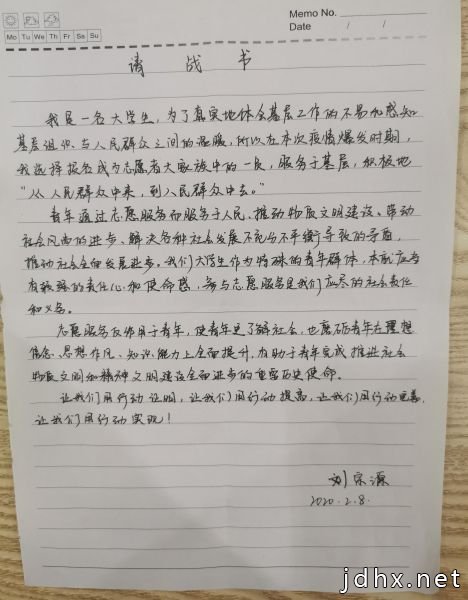 Memo No.
Mo Tu We Th Fr Sa Su
Date / /
请战书
我是一名大学生，为了真实地体会基层工作的不易和感知
基层组织与人民群众之间的温暖，所以在本次疫情爆发时期，
我选择报名成为志愿者大家族中的一员，服务于基层，积极地
“从人民群众中来，到人民群众中去。”
青年通过志愿服务而服务于人民、推动物质文明建设、带动
社会风气的进步、解决各种社会发展不充分不平衡导致的矛盾，
推动社会全面发展进步。我们大学生作为特殊的青年群体，本就应当
有较强的责任心和使命感，参与志愿服务是我们应尽的社会责任
和义务。
志愿服务反作用于青年，使青年更了解社会，也磨砺青年在理想
信念、思想作风、知识、能力上全面提升，有助于青年完成推进社会
物质文明和精神文明建设全面进步的重要历史使命。
让我们用行动证明，让我们用行动提高，让我们用行动完善，
让我们用行动实现！
刘宗源
2020.2.8.
jdhx.net